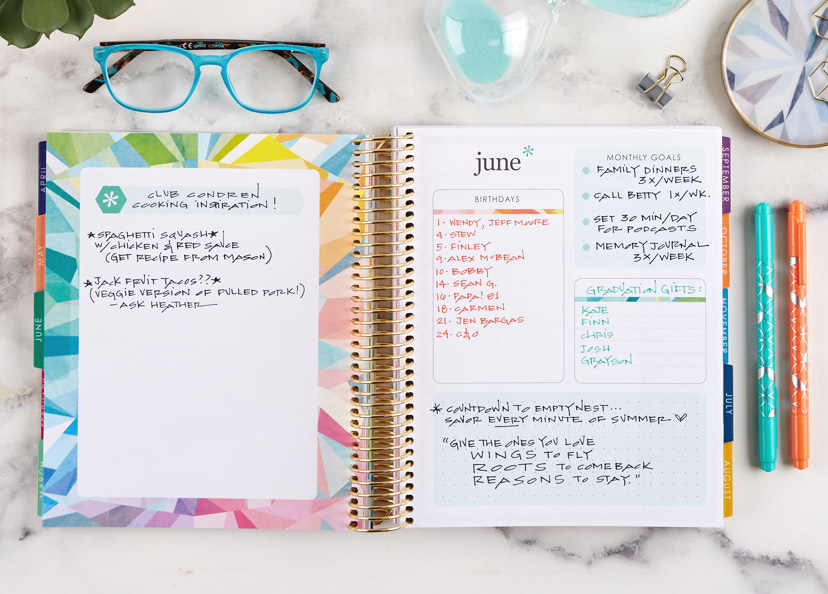 CLUB CONDREN
COOKING INSPIRATION!
*SPAGHETTI SQUASH*
W/CHICKEN & RED SAUCE
(GET RECIPE FROM MASON)
*JACK FRUIT TACOS??*
(VEGGIE VERSION OF PULLED PORK!)
-ASK HEATHER-
APRIL
MAY
JUNE
MARCH
june*
BIRTHDAYS
1. WENDY, JEFF MOORE
4. STEW
5. FINLEY
9. ALEX McBEAN
10. BOBBY
14. SEAN G.
16. PAPA! 81
18. CARMEN
21. JEN BARGAS
24.
MONTHLY GOALS
FAMILY DINNERS
3X/WEEK
CALL BETTY 1X/WK.
SET 30 MIN/DAY
FOR PODCASTS
MEMORY JOURNAL
3X/WEEK
GRADUATION GIFTS:
KATE
FINN
CHRIS
JOSH
GRAYSON
* COUNTDOWN TO EMPTY NEST...
SAVOR EVERY MINUTE OF SUMMER ♡
"GIVE THE ONES YOU LOVE
WINGS TO FLY
ROOTS TO COME BACK
REASONS TO STAY."
SEPTEMBER
OCTOBER
NOVEMBER
JULY
AUGUST